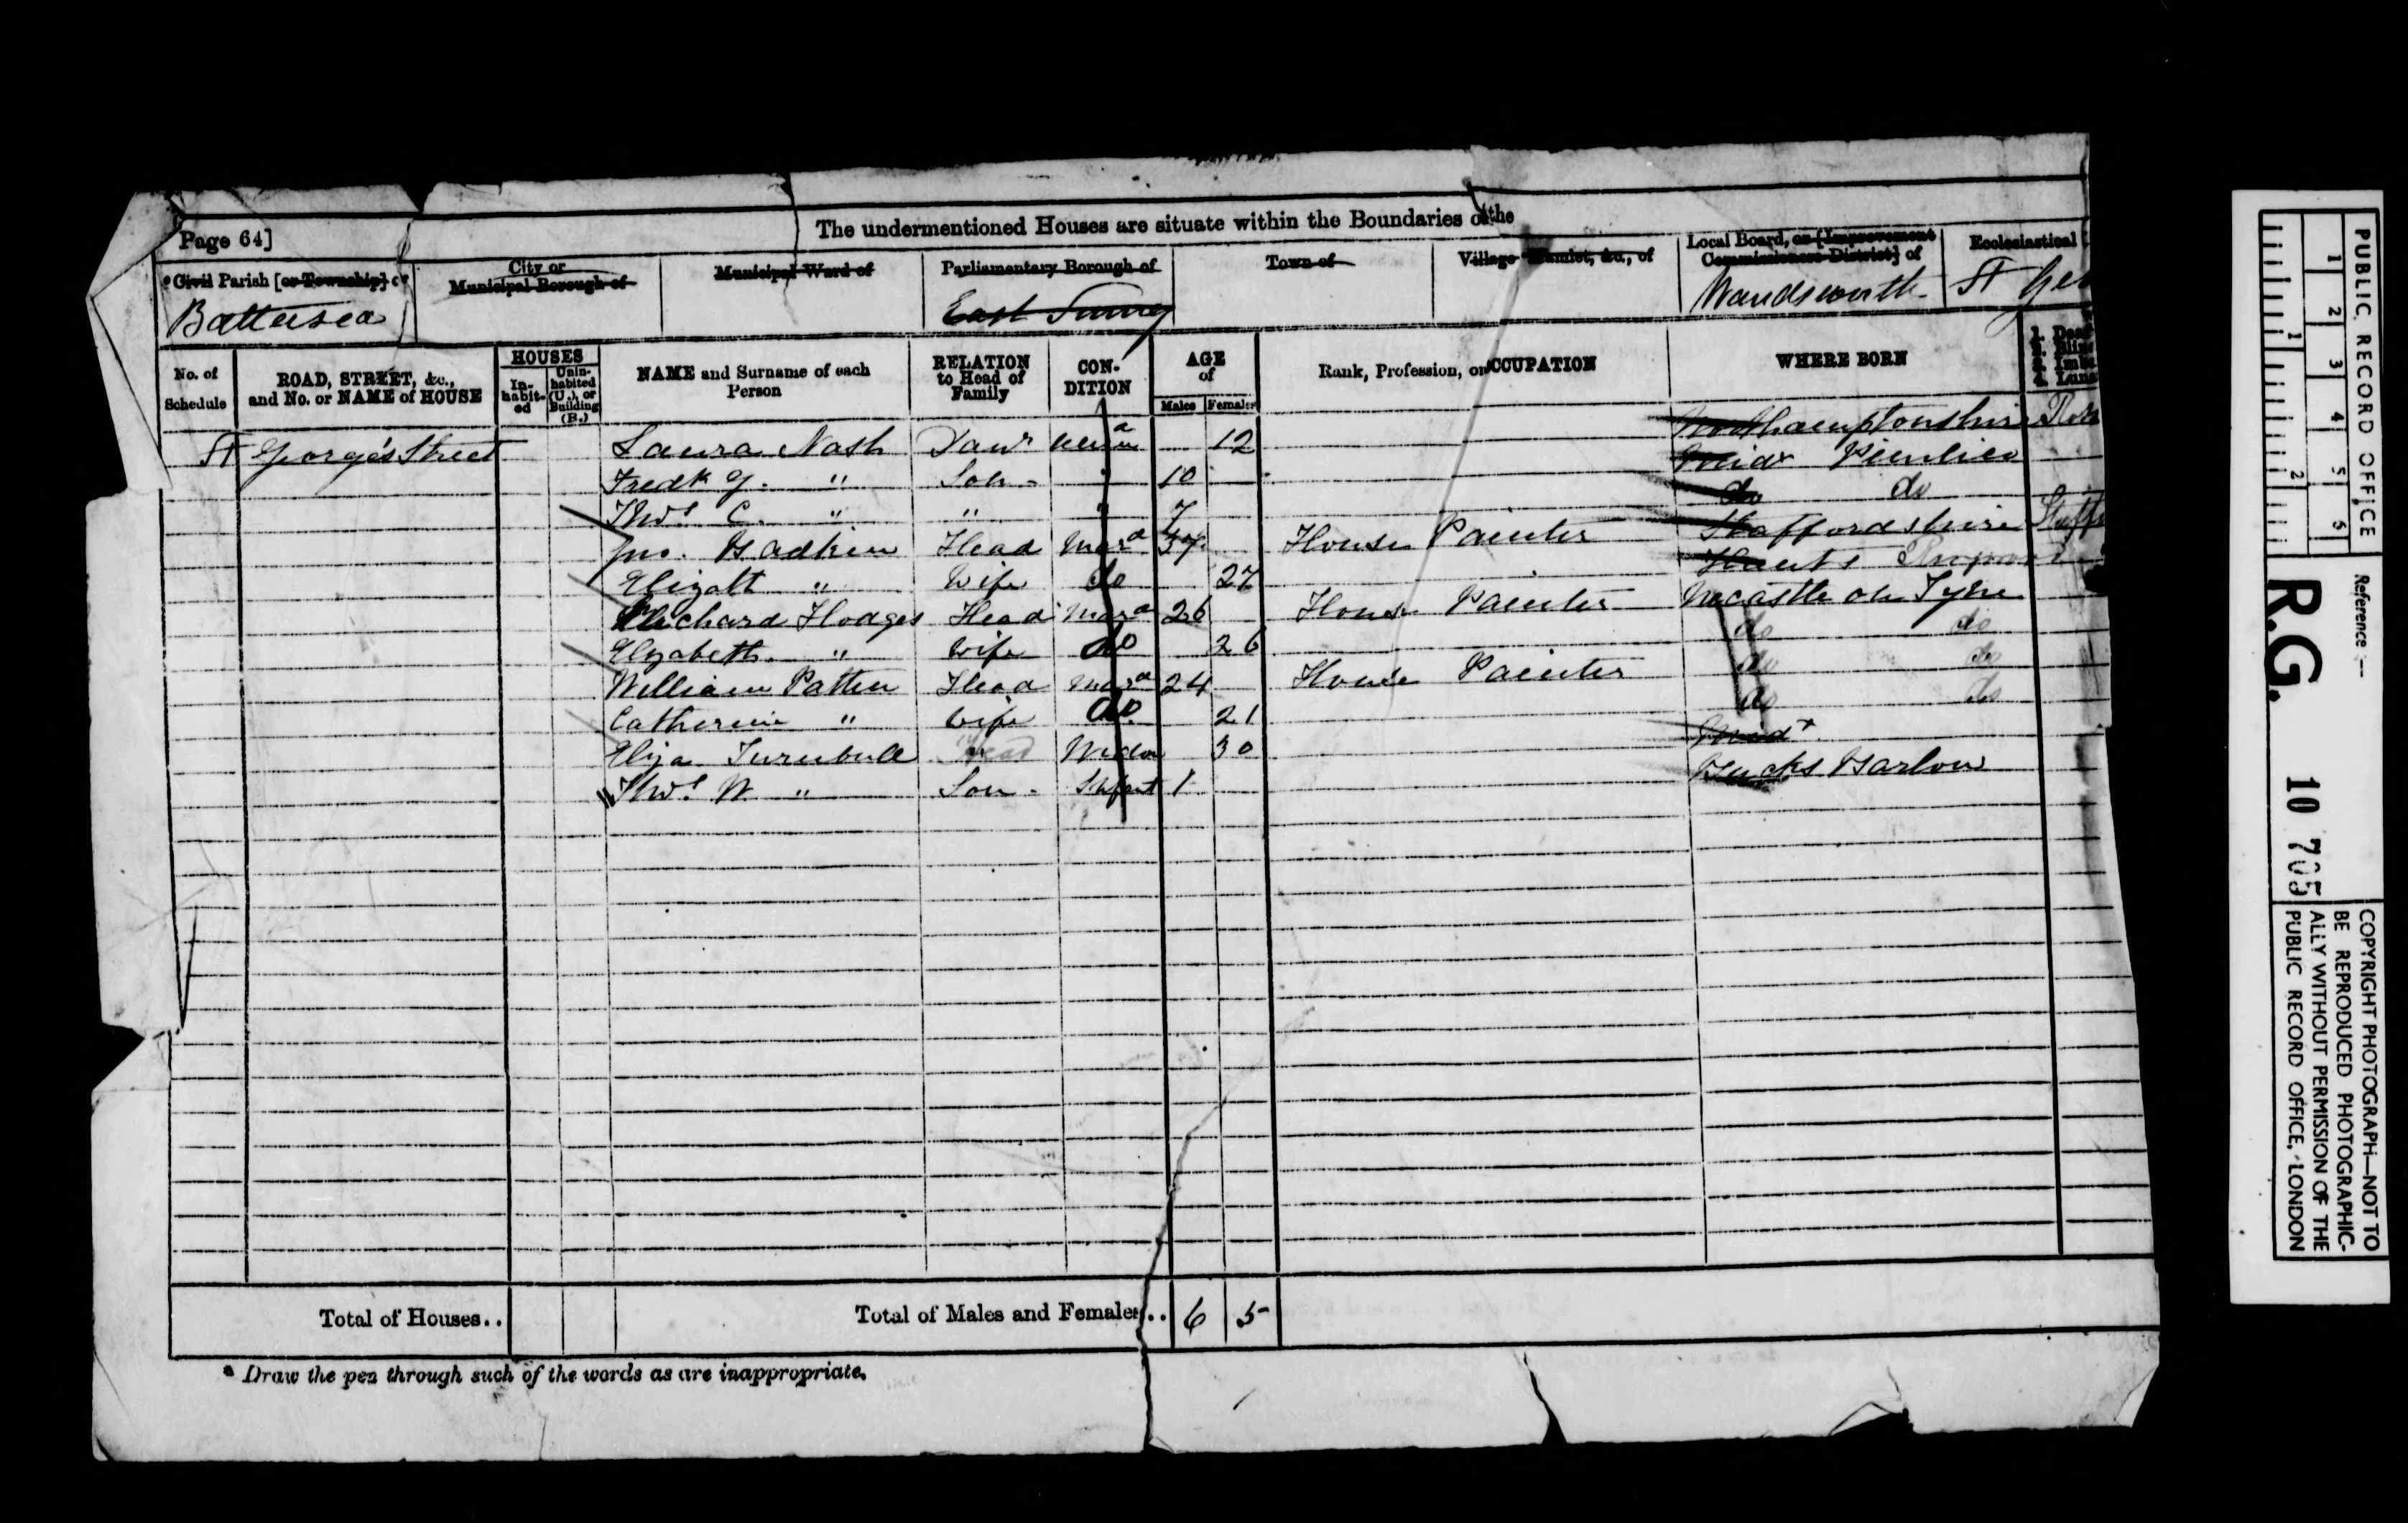 The undermentioned Houses are situate within the Boundaries of the
Page 64]
Civil Parish [or Township] of
Battersea
City or
Municipal Borough of
Municipal Ward of
Parliamentary Borough of
East Surrey
Town of
Village Hamlet, &c., of
Local Board, or [Improvement
Commissioners District] of
Wandsworth
Ecclesiastical
St Geo
No. of
Schedule
ROAD, STREET, &c.,
and No. or NAME of HOUSE
HOUSES
In-
habit-
ed
Unin-
habited
(U.), or
Building
(B.)
NAME and Surname of each
Person
RELATION
to Head of
Family
CON-
DITION
AGE
of
Males Females
Rank, Profession, or OCCUPATION
WHERE BORN
St George's Street Laura Nash Daur 12 Northamptonshire
Fredk G. " Son 10 Midx Pimlico
Thos C. " " " 7 do do
Jno. Badkin Head Mard 37 House Painter Staffordshire
Elizabth " Wife do 27 Hants
Richard Hodges Head Mard 26 House Painter Newcastle on Tyne
Elizabeth " Wife do 26 do do
William Patten Head Mard 24 House Painter do do
Catherine " Wife do 21 do do
Eliza Turnbull Head Widow 30 Midx
Thos W. " Son Infant 1 Bucks Barlow
Total of Houses..
Total of Males and Females.. 6 5
* Draw the pen through such of the words as are inappropriate.
PUBLIC RECORD OFFICE
1 2 3 4 5 6
1 2
Reference :—
R.G. 10 705
COPYRIGHT PHOTOGRAPH—NOT TO
BE REPRODUCED PHOTOGRAPHIC-
ALLY WITHOUT PERMISSION OF THE
PUBLIC RECORD OFFICE, LONDON